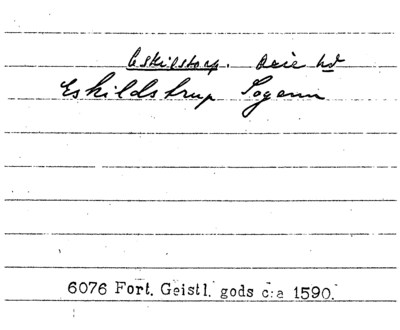 Eskilstorp. Oxie hd
Eskildstrup Sogenn
6076 Fort. Geistl. gods c:a 1590.